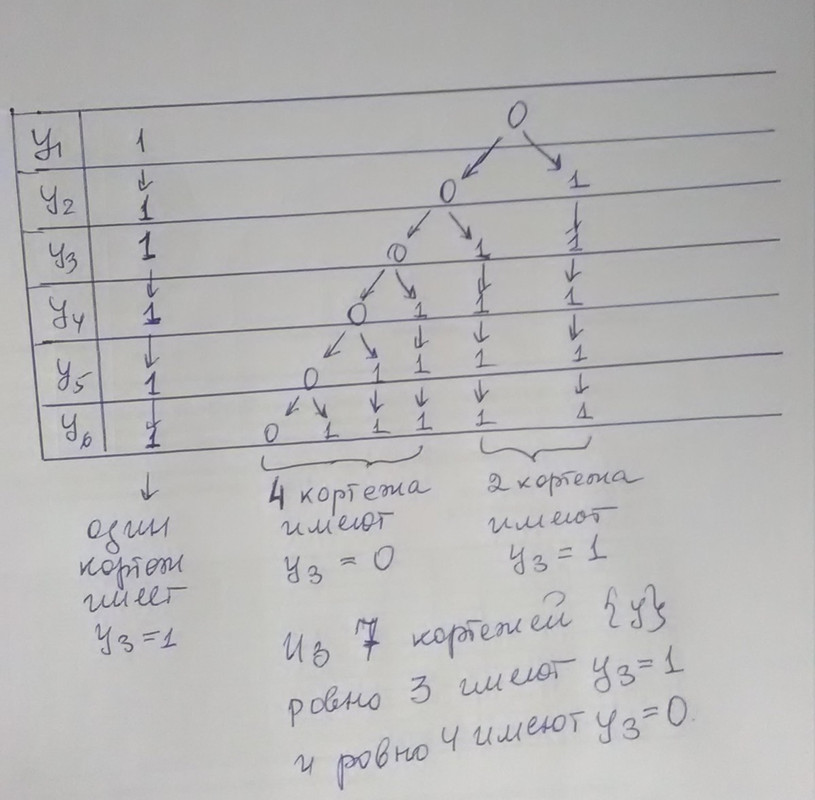 0
y1 1
0 1
y2 1
y3 1 0 1 1
y4 1 0 1 1 1
y5 1 0 1 1 1 1
y6 1 0 1 1 1 1 1
один
кортеж
имеет
y3=1
4 кортежа
имеют
y3 = 0
2 кортежа
имеют
y3 = 1
Из 7 кортежей {y}
ровно 3 имеют y3=1
и ровно 4 имеют y3=0.